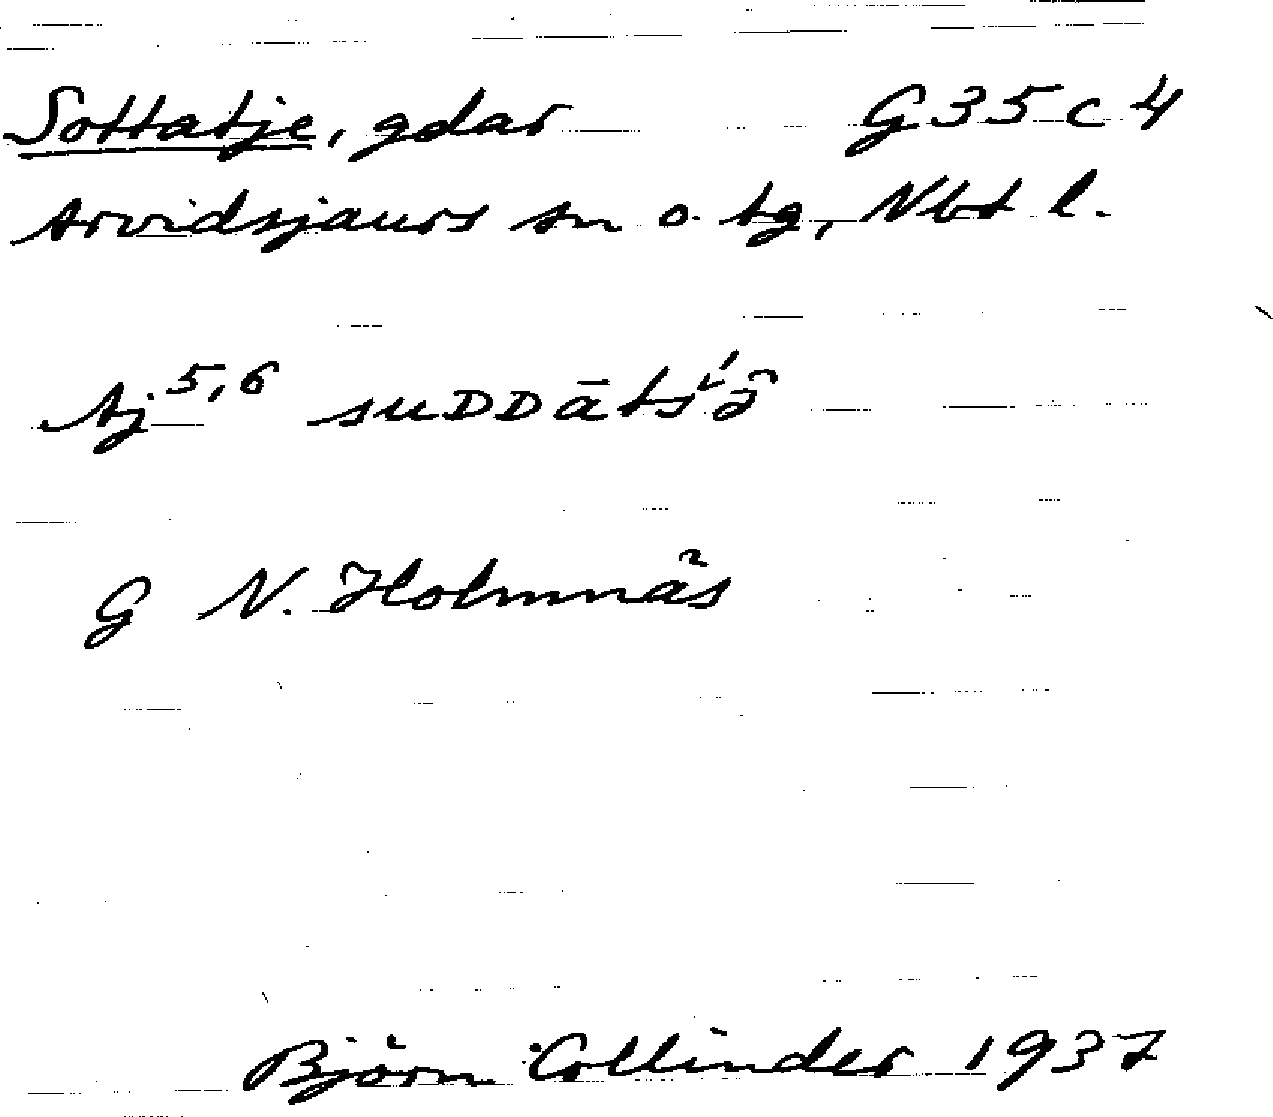 Sottatje, gdar G35c4
Arvidsjaurs sn o. tg, Nbt l.
Aj 5,6 suDDāts'ə̑
G N. Holmnäs
Björn Collinder 1937